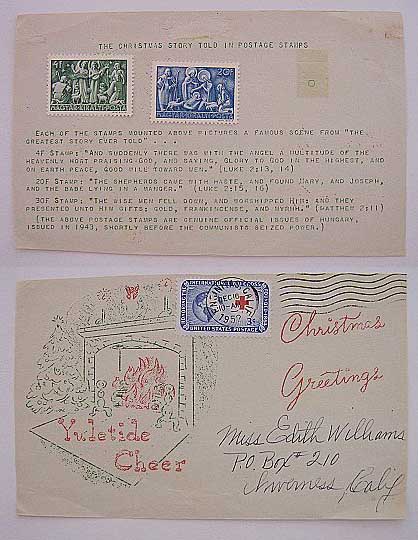 THE CHRISTMAS STORY TOLD IN POSTAGE STAMPS
MAGYAR KIRÁLYI POSTA
20F
MAGYAR KIRÁLYI POSTA
EACH OF THE STAMPS MOUNTED ABOVE PICTURES A FAMOUS SCENE FROM "THE
GREATEST STORY EVER TOLD" . . .
4F STAMP: "AND SUDDENLY THERE WAS WITH THE ANGEL A MULTITUDE OF THE
HEAVENLY HOST PRAISING GOD, AND SAYING, GLORY TO GOD IN THE HIGHEST, AND
ON EARTH PEACE, GOOD WILL TOWARD MEN." (LUKE 2:13, 14)
20F STAMP: "THE SHEPHERDS CAME WITH HASTE, AND FOUND MARY, AND JOSEPH,
AND THE BABE LYING IN A MANGER." (LUKE 2:15, 16)
30F STAMP: "THE WISE MEN FELL DOWN, AND WORSHIPPED HIM: AND THEY
PRESENTED UNTO HIM GIFTS; GOLD, FRANKINCENSE, AND MYRRH." (MATTHEW 2:11)
(THE ABOVE POSTAGE STAMPS ARE GENUINE OFFICIAL ISSUES OF HUNGARY,
ISSUED IN 1943, SHORTLY BEFORE THE COMMUNISTS SEIZED POWER.)
INTERNATIONAL RED CROSS
DEC 10
1952
3¢
UNITED STATES POSTAGE
Christmas
Greetings
Yuletide
Cheer
Miss Edith Williams
P.O. Box# 210
Inverness, Calif